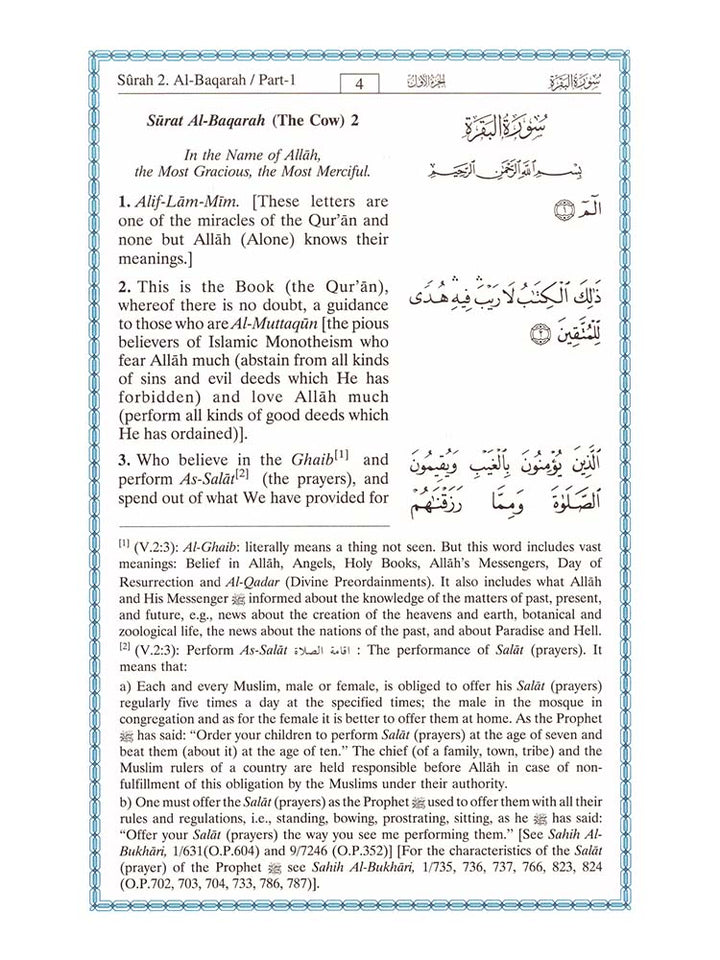 Sûrah 2. Al-Baqarah / Part-1
4
الجزء الأول
سورة البقرة
Sūrat Al-Baqarah (The Cow) 2
In the Name of Allāh,
the Most Gracious, the Most Merciful.
1. Alif-Lām-Mīm. [These letters are
one of the miracles of the Qur'ān and
none but Allāh (Alone) knows their
meanings.]
2. This is the Book (the Qur'ān),
whereof there is no doubt, a guidance
to those who are Al-Muttaqūn [the pious
believers of Islamic Monotheism who
fear Allāh much (abstain from all kinds
of sins and evil deeds which He has
forbidden) and love Allāh much
(perform all kinds of good deeds which
He has ordained)].
3. Who believe in the Ghaib[1] and
perform As-Salāt[2] (the prayers), and
spend out of what We have provided for
سُورَةُ البَقَرَةِ
بِسْمِ ٱللَّهِ ٱلرَّحْمَٰنِ ٱلرَّحِيمِ
الٓمٓ ١
ذَٰلِكَ ٱلْكِتَٰبُ لَا رَيْبَ ۛ فِيهِ ۛ هُدًى
لِّلْمُتَّقِينَ ٢
ٱلَّذِينَ يُؤْمِنُونَ بِٱلْغَيْبِ وَيُقِيمُونَ
ٱلصَّلَوٰةَ وَمِمَّا رَزَقْنَٰهُمْ
[1] (V.2:3): Al-Ghaib: literally means a thing not seen. But this word includes vast
meanings: Belief in Allāh, Angels, Holy Books, Allāh's Messengers, Day of
Resurrection and Al-Qadar (Divine Preordainments). It also includes what Allāh
and His Messenger ﷺ informed about the knowledge of the matters of past, present,
and future, e.g., news about the creation of the heavens and earth, botanical and
zoological life, the news about the nations of the past, and about Paradise and Hell.
[2] (V.2:3): Perform As-Salāt اقامة الصلاة : The performance of Salāt (prayers). It
means that:
a) Each and every Muslim, male or female, is obliged to offer his Salāt (prayers)
regularly five times a day at the specified times; the male in the mosque in
congregation and as for the female it is better to offer them at home. As the Prophet
ﷺ has said: "Order your children to perform Salāt (prayers) at the age of seven and
beat them (about it) at the age of ten." The chief (of a family, town, tribe) and the
Muslim rulers of a country are held responsible before Allāh in case of non-
fulfillment of this obligation by the Muslims under their authority.
b) One must offer the Salāt (prayers) as the Prophet ﷺ used to offer them with all their
rules and regulations, i.e., standing, bowing, prostrating, sitting, as he ﷺ has said:
"Offer your Salāt (prayers) the way you see me performing them." [See Sahih Al-
Bukhāri, 1/631(O.P.604) and 9/7246 (O.P.352)] [For the characteristics of the Salāt
(prayer) of the Prophet ﷺ see Sahih Al-Bukhāri, 1/735, 736, 737, 766, 823, 824
(O.P.702, 703, 704, 733, 786, 787)].